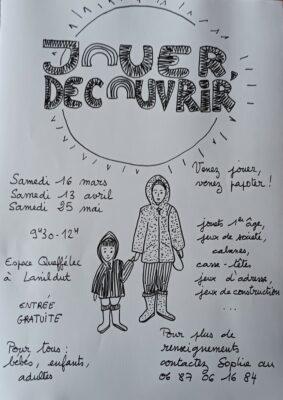 JOUER,
DECOUVRIR,
Venez jouer,
venez papoter !
Samedi 16 mars
Samedi 13 avril
Samedi 25 mai
9h30-12h
Espace Queffélec
à Lanildut
ENTRÉE
GRATUITE
Pour tous :
bébés, enfants,
adultes
jouets 1er âge,
jeux de société,
cabanes,
casse-têtes,
jeux d'adresse,
jeux de construction
...
Pour plus de
renseignements
contactez Sophie au
06 87 06 16 84